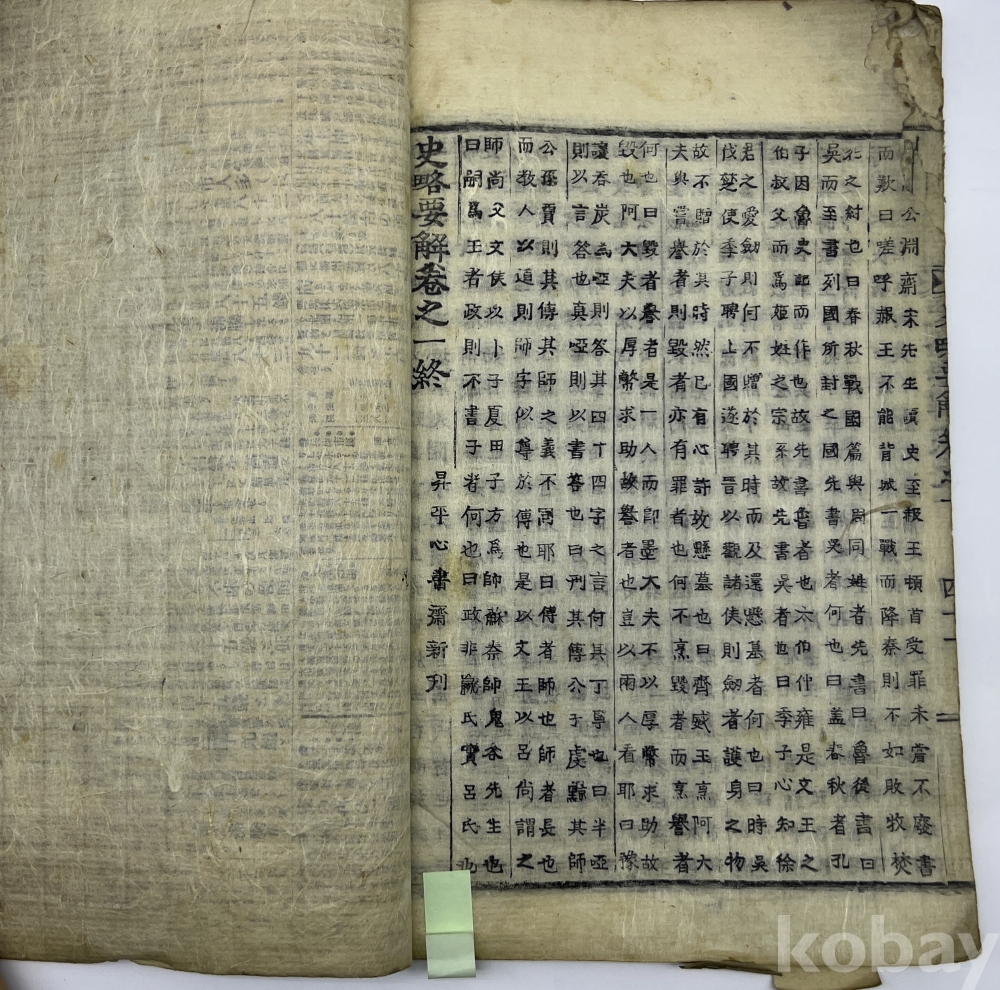 公淵齋宋先生讀史至赧王頓首受罪未嘗不廢書
而歎曰嗟呼赧王不能背城一戰而降秦則不如敗牧焚
之紂也曰春秋戰國篇與周同姓者先書曰魯後書曰
吳而至書列國所封之國先書吳者何也曰盖春秋者孔
子因魯史記而作也故先書魯者也太伯仲雍是文王之
伯叔父而爲姬姓之宗系故先書吳者也曰季子心知徐
君之愛劒則何不贈於其時而及還懸墓者何也曰時吳
伐楚使季子聘上國遂聘晉以觀諸侯則劒者護身之物
故不贈於其時然已有心許故懸墓也曰齊威王烹阿大
夫與嘗譽者則毀者亦有罪者也何不烹毀者而烹譽者
何也曰毀者譽者是一人而卽墨大夫不以厚幣求助故
毀也阿大夫以厚幣求助故譽者也豈以兩人看耶曰豫
讓吞炭爲啞則答其四丁四字之言何其丁寧也曰半啞
則以言答也眞啞則以書答也曰刑其傅公子虔黥其師
公孫賈則其傅其師之義不同耶曰傅者師也師者長也
而敎人以道則師字似尊於傅也是以文王以呂尙謂之
師尙父文侯以卜子夏田子方爲師蘇秦師鬼谷先生也
曰嗣爲王者政則不書子者何也曰政非嬴氏實呂氏也
史略要解卷之一終 昇平心書齋新刊
kobay